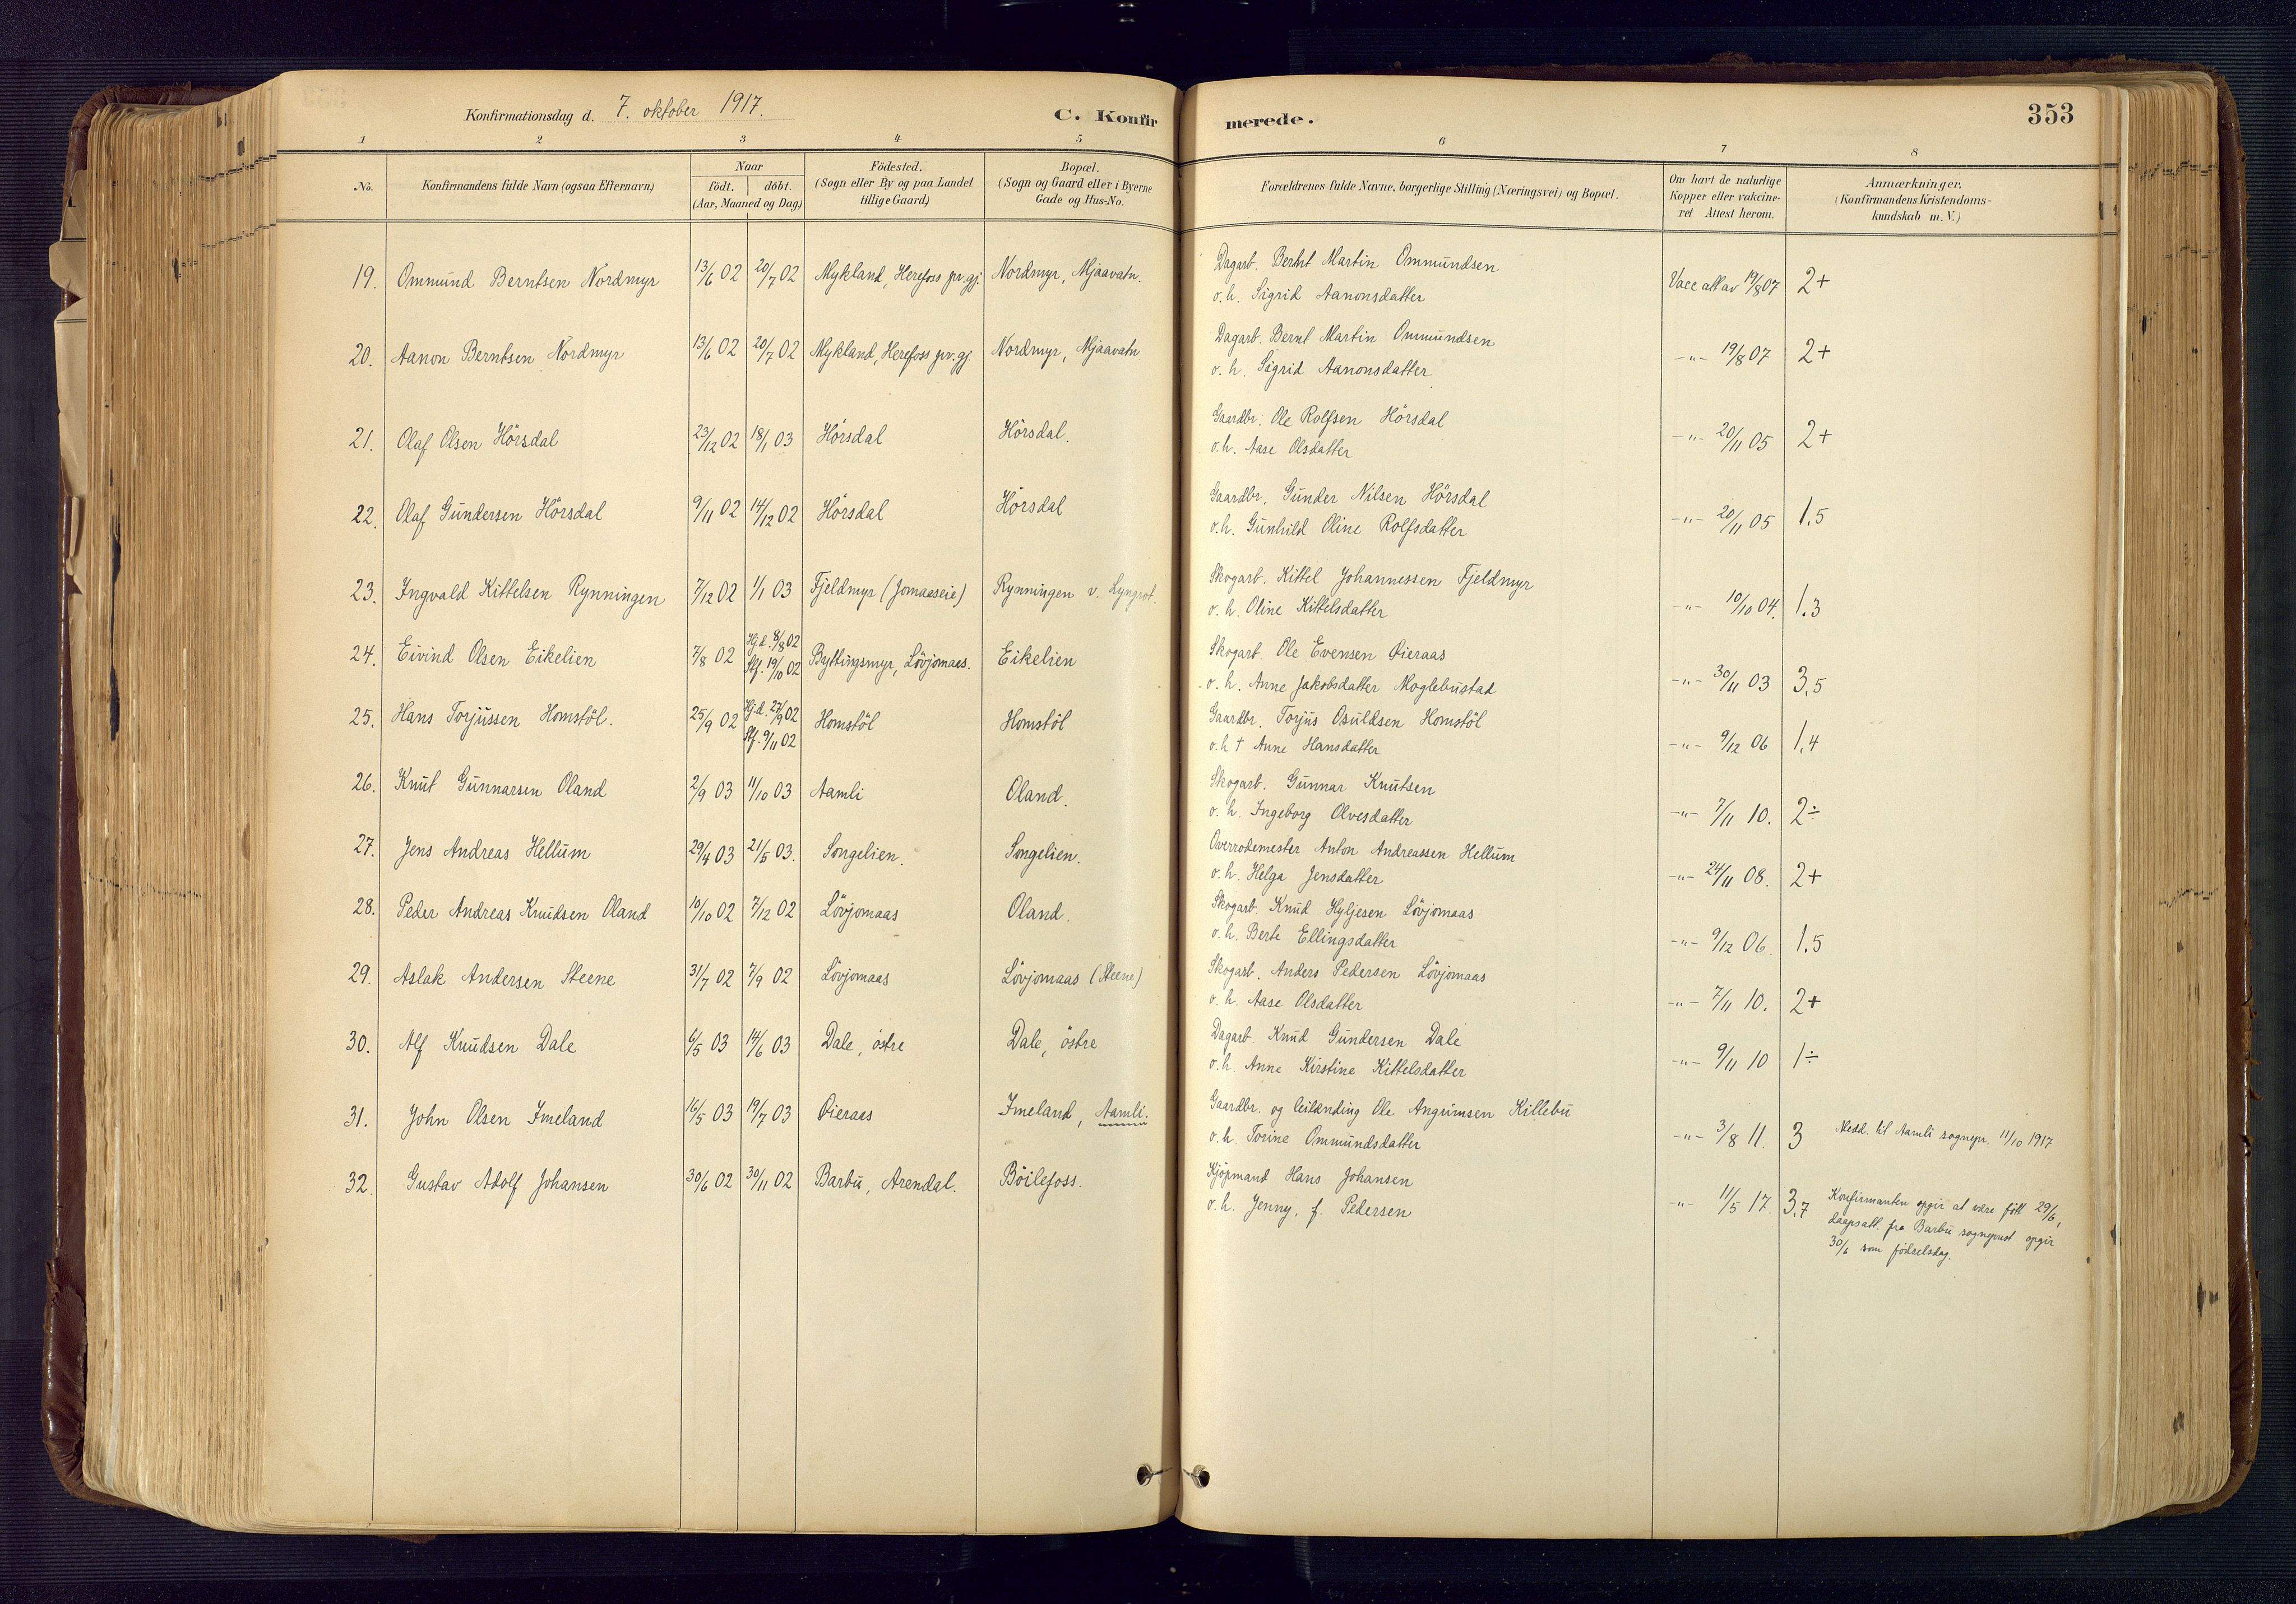 Konfirmationsdag d. 7. oktober 1917.
C. Konfirmerede.
353
1 2 3 4 5 6 7 8
No.
Konfirmandens fulde Navn (ogsaa Efternavn)
Naar
födt. döbt.
(Aar, Maaned og Dag)
Födested.
(Sogn eller By og paa Landet
tillige Gaard)
Bopæl.
(Sogn og Gaard eller i Byerne
Gade og Hus-No.
Forældrenes fulde Navne, borgerlige Stilling (Næringsvei) og Bopæl.
Om havt de naturlige
Kopper eller vakcine-
ret Attest herom.
Anmærkninger.
(Konfirmandens Kristendoms-
kundskab m. V.)
19. Ommund Berntsen Nordmyr 13/6 02 20/7 02 Mykland, Herefoss pr.gj. Nordmyr, Mjaavatn. Dagarb. Bernt Martin Ommundsen
o. h. Sigrid Aanonsdatter Vacc att av 19/8 07 2+
20. Aanon Berntsen Nordmyr 13/6 02 20/7 02 Mykland, Herefoss pr.gj. Nordmyr, Mjaavatn Dagarb. Bernt Martin Ommundsen
o. h. Sigrid Aanonsdatter -"- 19/8 07 2+
21. Olaf Olsen Hörsdal 23/12 02 18/1 03 Hörsdal Hörsdal. Gaardbr. Ole Rolfsen Hörsdal
o. h. Aase Olsdatter -"- 20/11 05 2+
22. Olaf Gundersen Hörsdal 9/11 02 14/12 02 Hörsdal Hörsdal Gaardbr. Gunder Nilsen Hörsdal
o. h. Gunhild Oline Rolfsdatter -"- 20/11 05 1.5
23. Ingvald Kittelsen Rynningen 7/12 02 1/1 03 Fjeldmyr (Jomaaseie) Rynningen v. Lyngrot. Skogarb. Kittel Johannessen Fjeldmyr
o. h. Oline Kittelsdatter -"- 10/10 04. 1.3
24. Eivind Olsen Eikelien 7/8 02 Hj.d. 8/8 02
Stf. 19/10 02 Byttingsmyr, Lövjomaas. Eikelien Skogarb. Ole Evensen Öieraas
o. h. Anne Jakobsdatter Moglebustad -"- 30/11 03 3.5
25. Hans Torjussen Homstöl. 25/9 02 Hj.d. 27/9 02
Stf. 9/11 02 Homstöl Homstöl Gaardbr. Torjus Osuldsen Homstöl
o. h † Anne Hansdatter -"- 9/12 06 1.4
26. Knut Gunnarsen Oland 2/9 03 11/10 03 Aamli Oland. Skogarb. Gunnar Knutsen
o. h. Ingeborg Olvesdatter -"- 7/11 10. 2÷
27. Jens Andreas Hellum 29/4 03 21/5 03. Songelien. Songelien. Overrodemester Anton Andreassen Hellum
o. h. Helga Jensdatter -"- 24/11 08. 2+
28. Peder Andreas Knudsen Oland 10/10 02 7/12 02 Lövjomaas Oland. Skogarb. Knud Hyljesen Lövjomaas
o. h. Berte Ellingsdatter -"- 9/12 06. 1.5
29. Aslak Andersen Steene 31/7 02 7/9 02 Lövjomaas Lövjomaas (Steene) Skogarb. Anders Pedersen Lövjomaas
o. h. Aase Olsdatter -"- 7/11 10. 2+
30. Alf Knudsen Dale 6/5 03 14/6 03 Dale, östre Dale, östre Dagarb. Knud Gundersen Dale
o. h. Anne Kirstine Kittelsdatter -"- 9/11 10 1÷
31. John Olsen Imeland 16/5 03 19/7 03 Öieraas Imeland, Aamli. Gaardbr. og leilænding Ole Angrimsen Killebu
o. h. Torine Ommundsdatter -"- 3/8 11. 3 Medd. til Aamli sognepr. 11/10 1917
32. Gustav Adolf Johansen 30/6 02 30/11 02 Barbu, Arendal. Böilefoss. Kjöpmand Hans Johansen
o. h. Jenny, f. Pedersen -"- 11/5 17. 3.7 Konfirmanten opgir at være födt 29/6,
daapsatt. fra Barbu sogneprest opgir
30/6 som födselsdag.